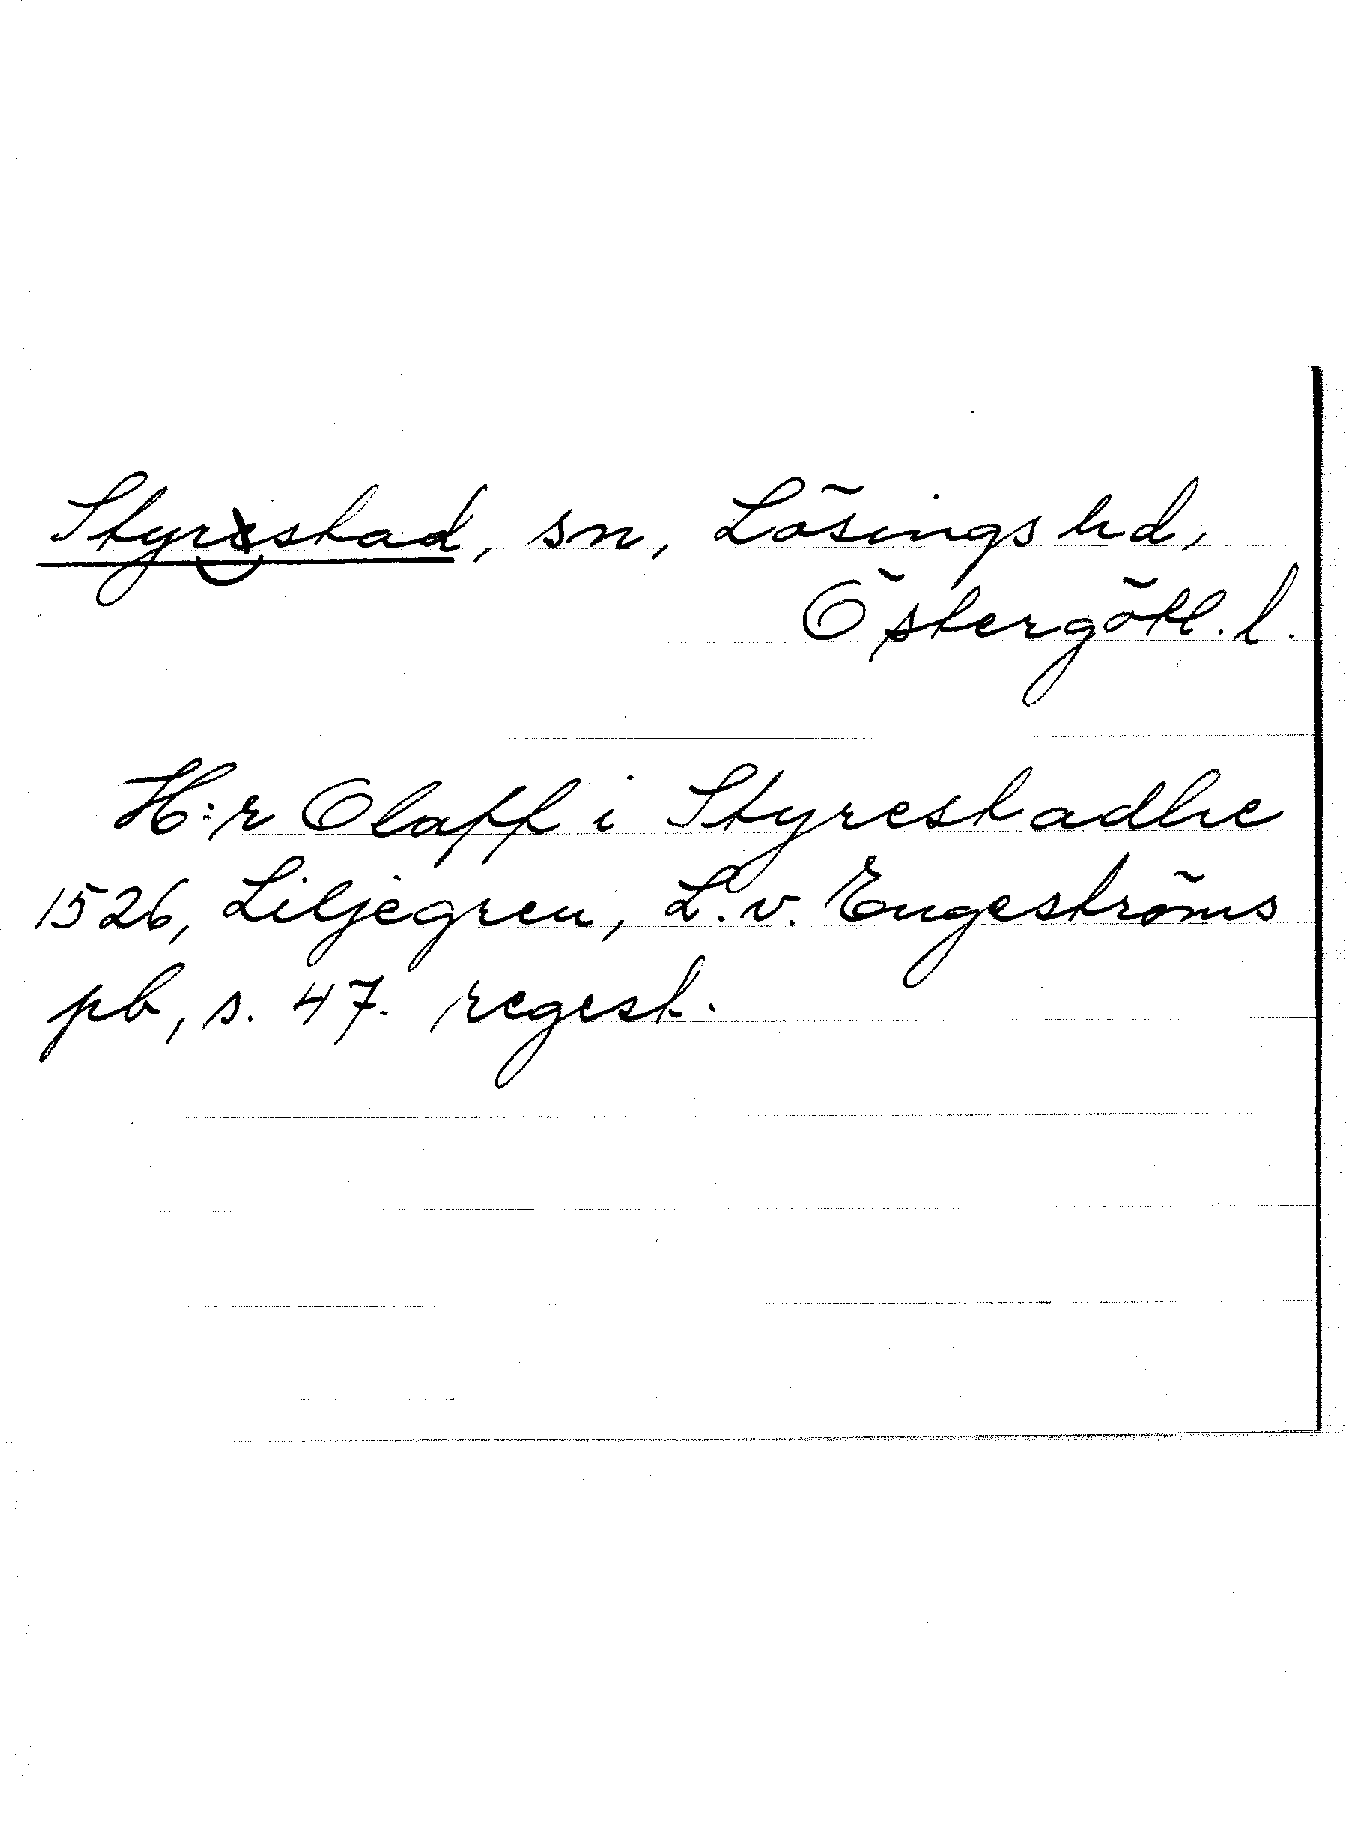 Styrstad, sn, Lösings hd,
Östergötl. l.
H:r Olaff i Styrestadhe
1526, Liljegren, L. v. Engeströms
pb, s. 47. regest.